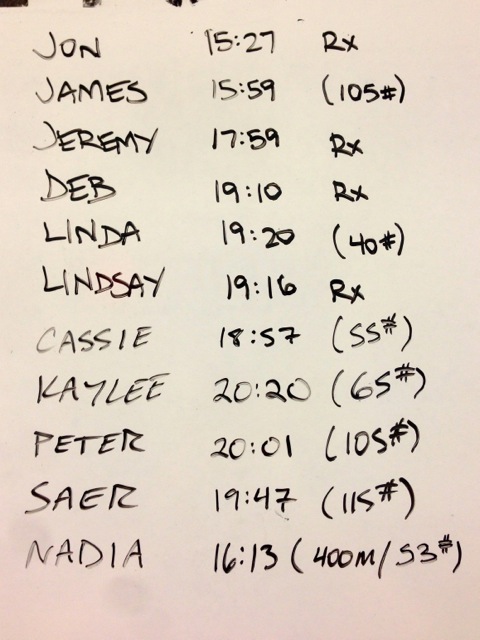 JON 15:27 Rx
JAMES 15:59 (105#)
JEREMY 17:59 Rx
DEB 19:10 Rx
LINDA 19:20 (40#)
LINDSAY 19:16 Rx
CASSIE 18:57 (55#)
KAYLEE 20:20 (65#)
PETER 20:01 (105#)
SAER 19:47 (115#)
NADIA 16:13 (400M/53#)